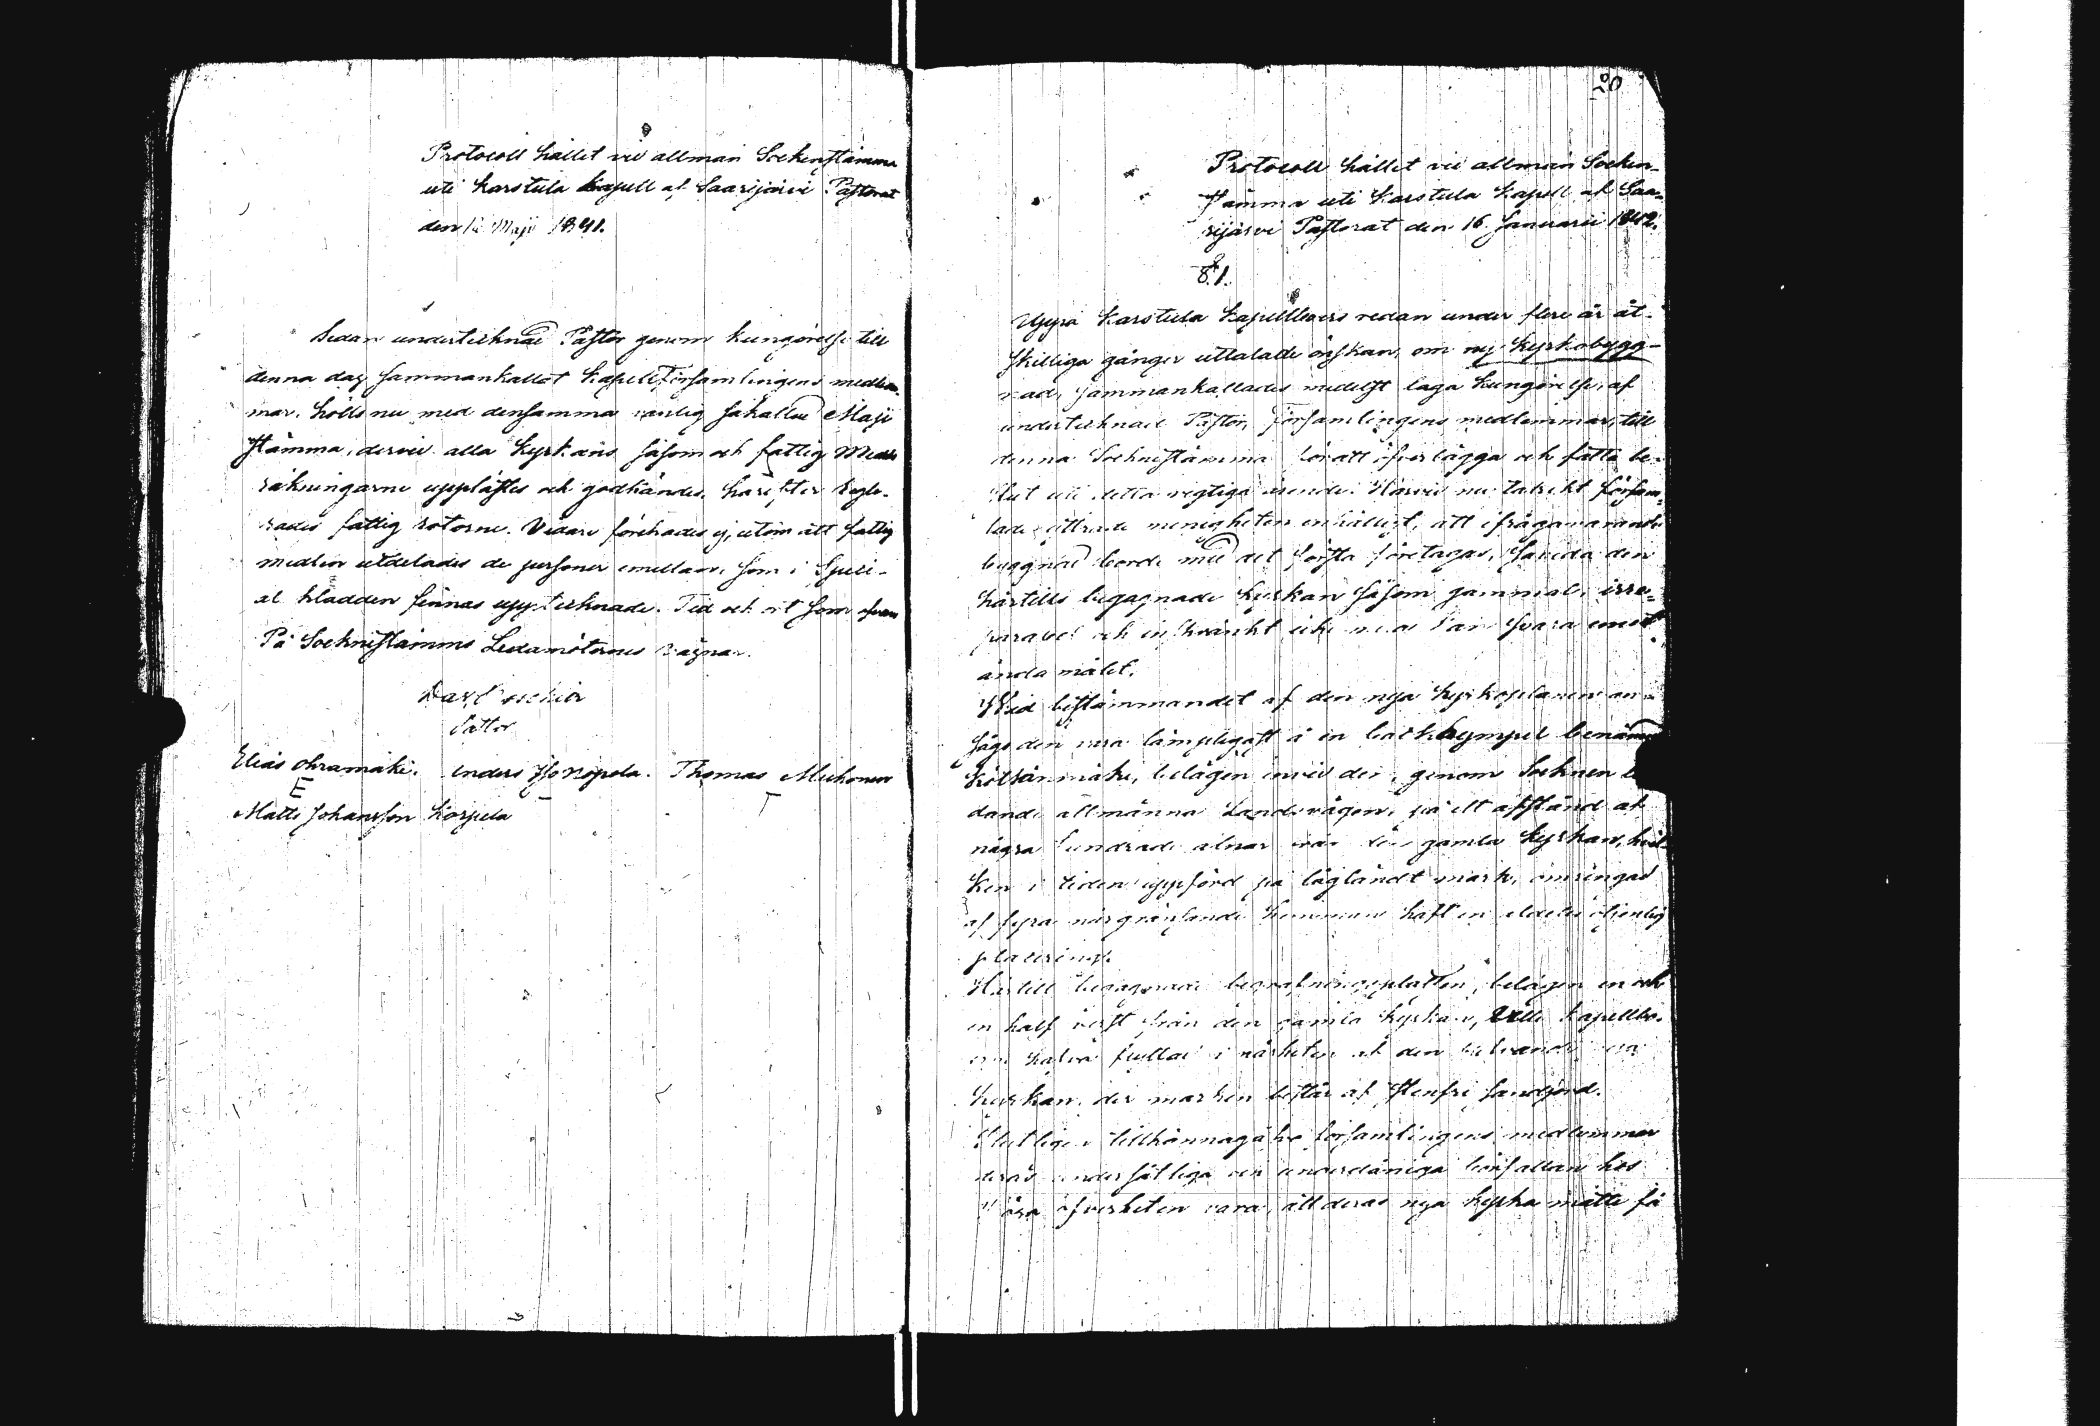 Protocoll hållet vid allmän Sockenstämma
uti Karstula Kapell af Saarijärvi Pastorat
den 12 Maji 1841.
Sedan undertecknad Pastor genom kungörelse till
denna dag sammankallat Kapellförsamlingens medlem-
mar, hölls nu med densamma vanlig såkallad Maji
stämma, dervid alla Kyrkans såsom och fattig Medels
räkningarne upplästes och godkändes. Härefter regle-
rades fattig rotorne. Vidare förehades ej, utom att fattig
medlen utdelades de personer emellan, som i Speci-
al kladden finnas upptecknade. Tid och ort som ofvan
På Sockenstämmo Ledamöternes vägnar.
Pastor
Elias Ohramäki. Anders Honopola. Thomas Muhonen
Matts Johansson Korpela
20
Protocoll hållet vid allmän Socken-
stämma uti Karstula Kapell af Saa-
rijärvi Pastorat den 16 Januarii 1842.
§.1.
Uppå Karstula Kapellboers redan under flere år åt-
skilliga gånger uttalade önskan, om ny Kyrkobygg-
nad, sammankallades medelst laga kungörelse, af
undertecknad Pastor, församlingens medlemmar, till
denna Sockenstämma för att öfverlägga och fatta be-
slut uti detta vigtiga ärende. Härvid nu talrikt försam-
lade yttrade menigheten enhälligt, att ifrågavarande
byggnad borde med det första företagas, sånda den
härtills begagnade Kyrkan såsom gammal, irre-
parabel och inskränkt icke mer kan svara emot
ändamålet.
Vid bestämmandet af den nya Kyrkoplanen an-
sågs den vara lämpligast å en backkympel benämnd
Kötkänmäki, belägen invid den, genom Socknen le-
dande allmänna Landsvägen, på ett afstånd af
några hundrade alnar från den gamla Kyrkan, hvil-
ken i tiden uppförd på lågländt mark, omringad
af fyra närgränsande hemman haft en aldeles otjenlig
placering.
Härtill begagnade begrafningsplatsen, belägen en och
en half verst från den gamla Kyrkan, ville Kapellbo-
erne hafva flyttad i närheten af den blifvande nya
Kyrkan, der marken består af stenfri sandjord.
Slutligen tillkännagåfvo församlingens medlemmar
deras underdåniga bönfallan hos
Höga öfverheten vara, att deras nya Kyrka måtte få